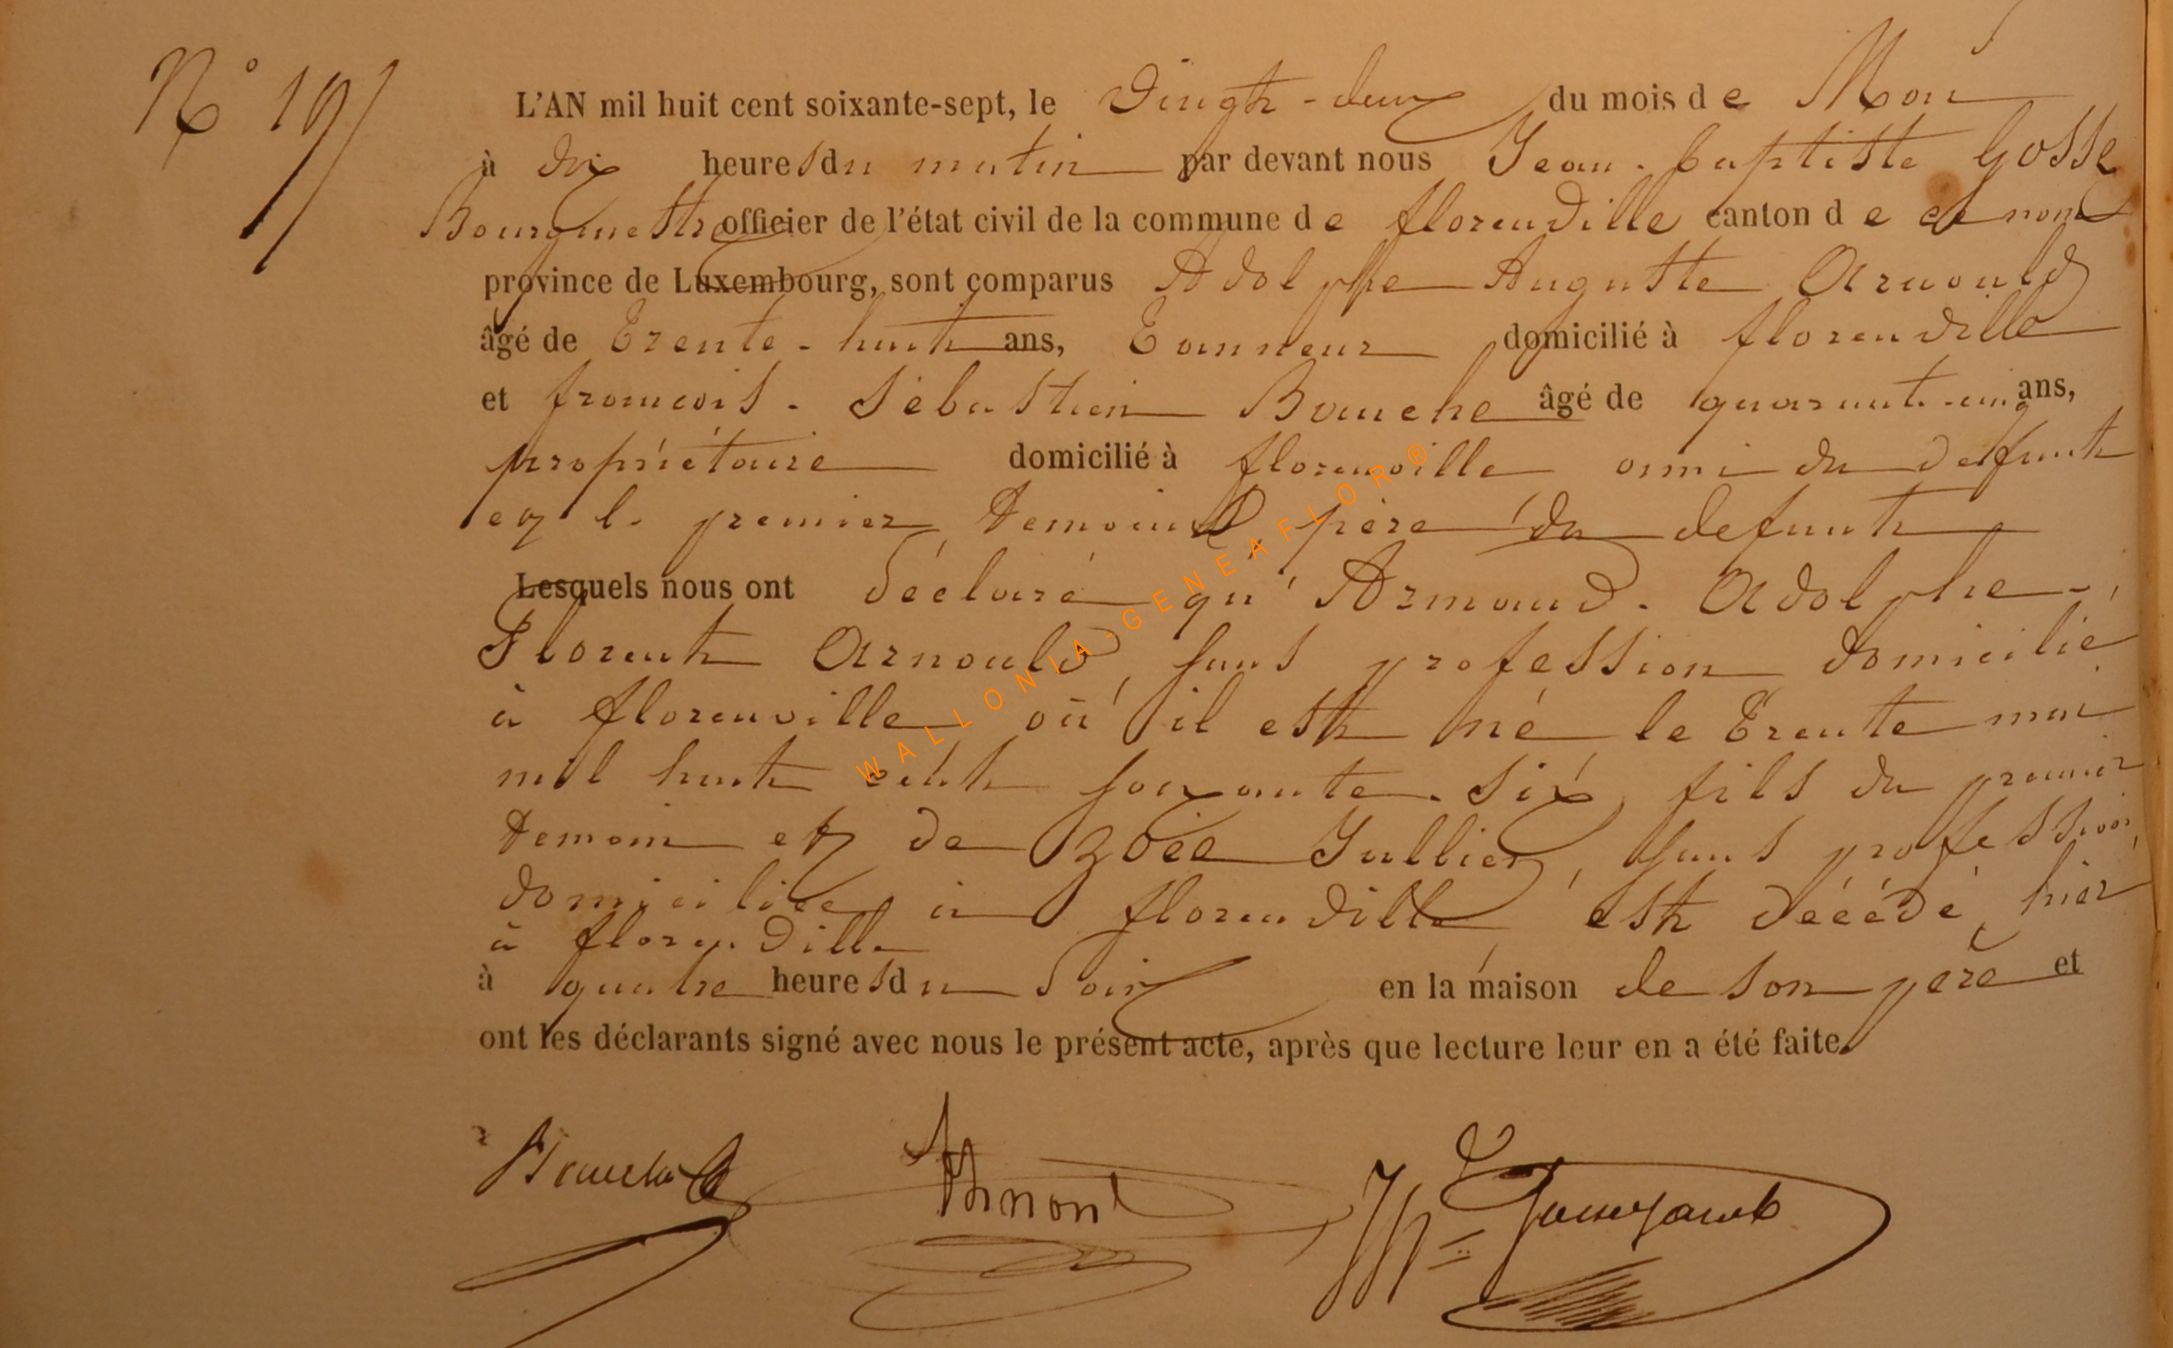 N° 19
L'AN mil huit cent soixante-sept, le Vingt-deux du mois de Mai
à dix heures du matin par devant nous Jean-baptiste Gosse
Bourgmestre officier de l'état civil de la commune de florenville canton de ce nom
province de Luxembourg, sont comparus Adolphe Auguste Arnould
âgé de Trente-huit ans, Tanneur domicilié à florenville
et françois-Sébastien Bauche âgé de quarante-cinq ans,
propriétaire domicilié à florenville ami du defunt
et le premier temoin père du defunt
Lesquels nous ont déclaré qu'Armand-Adolphe-
Florent Arnould, sans profession domicilié
à florenville où il est né le Trente mai
mil huit cent soixante-six, fils du premier
temoin et de Zoée Jullien, sans profession,
domiciliée à florenville est décédé hier
à florenville
à quatre heures du Soir en la maison de son père et
ont les déclarants signé avec nous le présent acte, après que lecture leur en a été faite.
WALLONIA-GENEAFLOR®